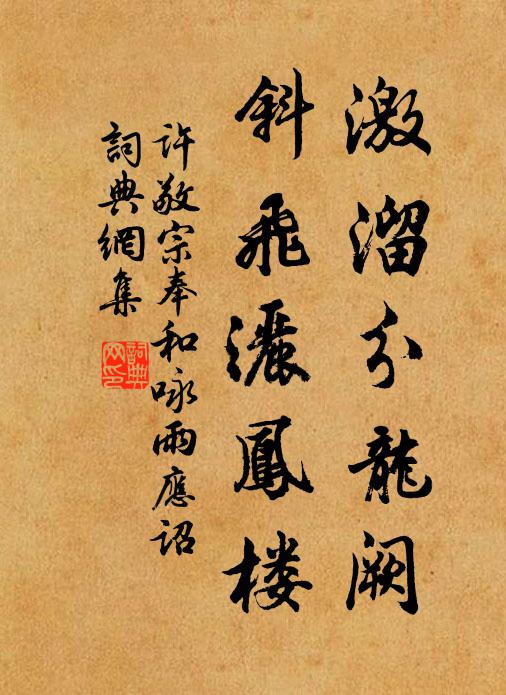 激溜分龍闕
斜飛灑鳳楼
許敬宗奉和咏雨應詔
詞典網集
詞典網印